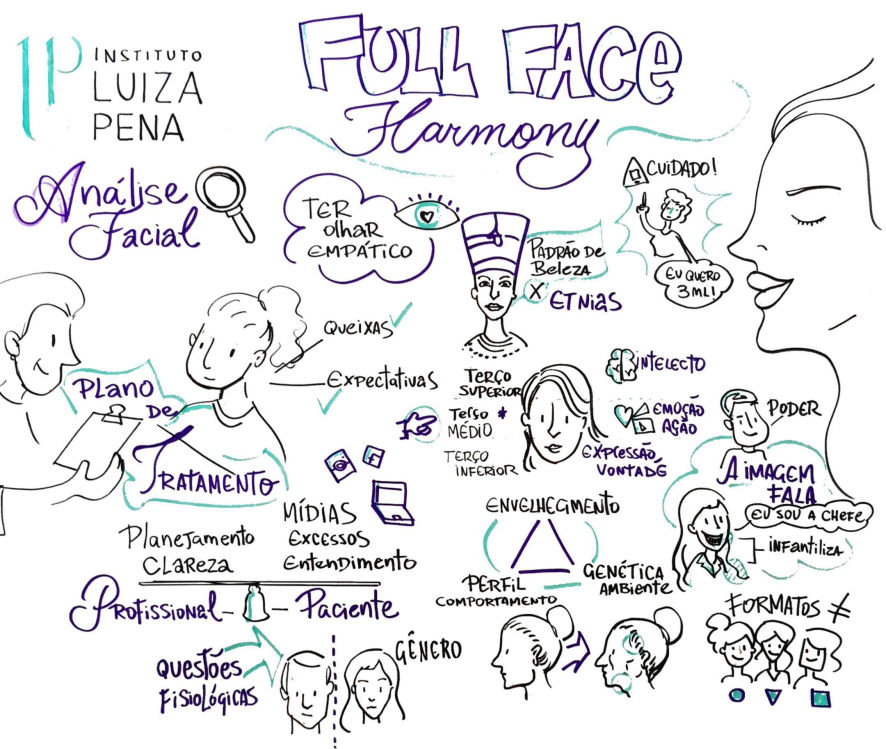 INSTITUTO
LUIZA
PENA
FULL FACE
Harmony
Análise
Facial
TER
olhar
EMPÁTICO
PADRÃO De
Beleza
X ETNiAS
CUiDADO!
EU QUERO
3 ML!
Queixas
Expectativas
PLANO
DE
TRATAMENTO
TERÇO
SUPERIOR
Terso *
MÉDIO
TERÇO
INFERIOR
INTELECTO
EMOÇÃO
AÇÃO
EXPRESSÃO
VONTADE
PODER
A IMAGEM
FALA
EU SOU A CHEFE
INFANTILIZA
MÍDIAS
EXCESSOS
Entendimento
Planejamento
CLAREZA
PROFISSIONAL - - Paciente
ENVELHECIMENTO
PERFIL
COMPORTAMENTO
GENÉTICA
AMBIENTE
QUESTÕES
FiSiOLóGiCAS
GÊNERO
FORMATOS ≠